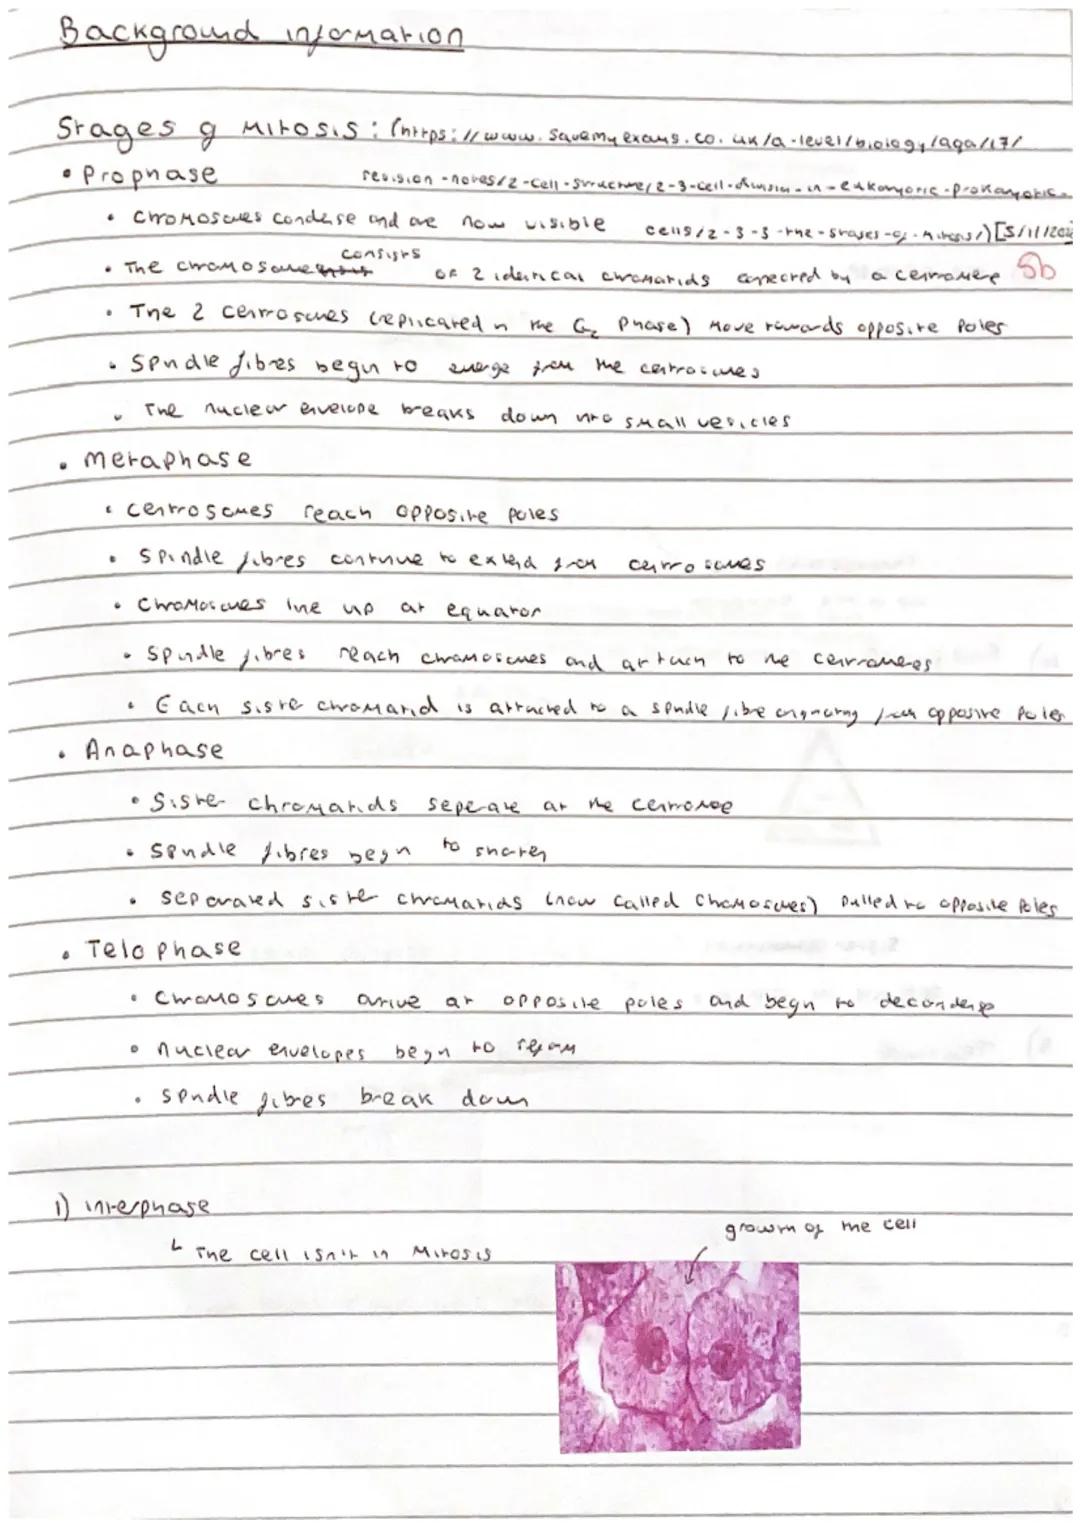 Background information
Stages of Mitosis : (https://www.savemyexams.co.uk/a-level/biology/aqa/17/
• Prophase revision-notes/2-cell-structure/2-3-cell-division-in-eukaryotic-prokaryotic-
• Chromosomes condense and are now visible cells/2-3-3-the-stages-of-mitosis/) [5/11/202
consists
• The chromosome of 2 identical chromatids connected by a centromere 5b
• The 2 centrosomes (replicated in the G2 phase) move towards opposite poles
• Spindle fibres begin to emerge from the centrosomes
• The nuclear envelope breaks down into small vesicles
• Metaphase
• Centrosomes reach opposite poles
• Spindle fibres continue to extend from centrosomes
• Chromosomes line up at equator
• Spindle fibres reach chromosomes and attach to the centromeres
• Each sister chromatid is attached to a spindle fibre originating from opposite poles
• Anaphase
• Sister chromatids seperate at the centromere
• Spindle fibres begin to shorten
• Separated sister chromatids (now called chromosomes) pulled to opposite poles
• Telophase
• Chromosomes arrive at opposite poles and begin to decondense
• nuclear envelopes begin to reform
• spindle fibres break down
1) interphase
growth of the cell
↳ The cell isn't in Mitosis